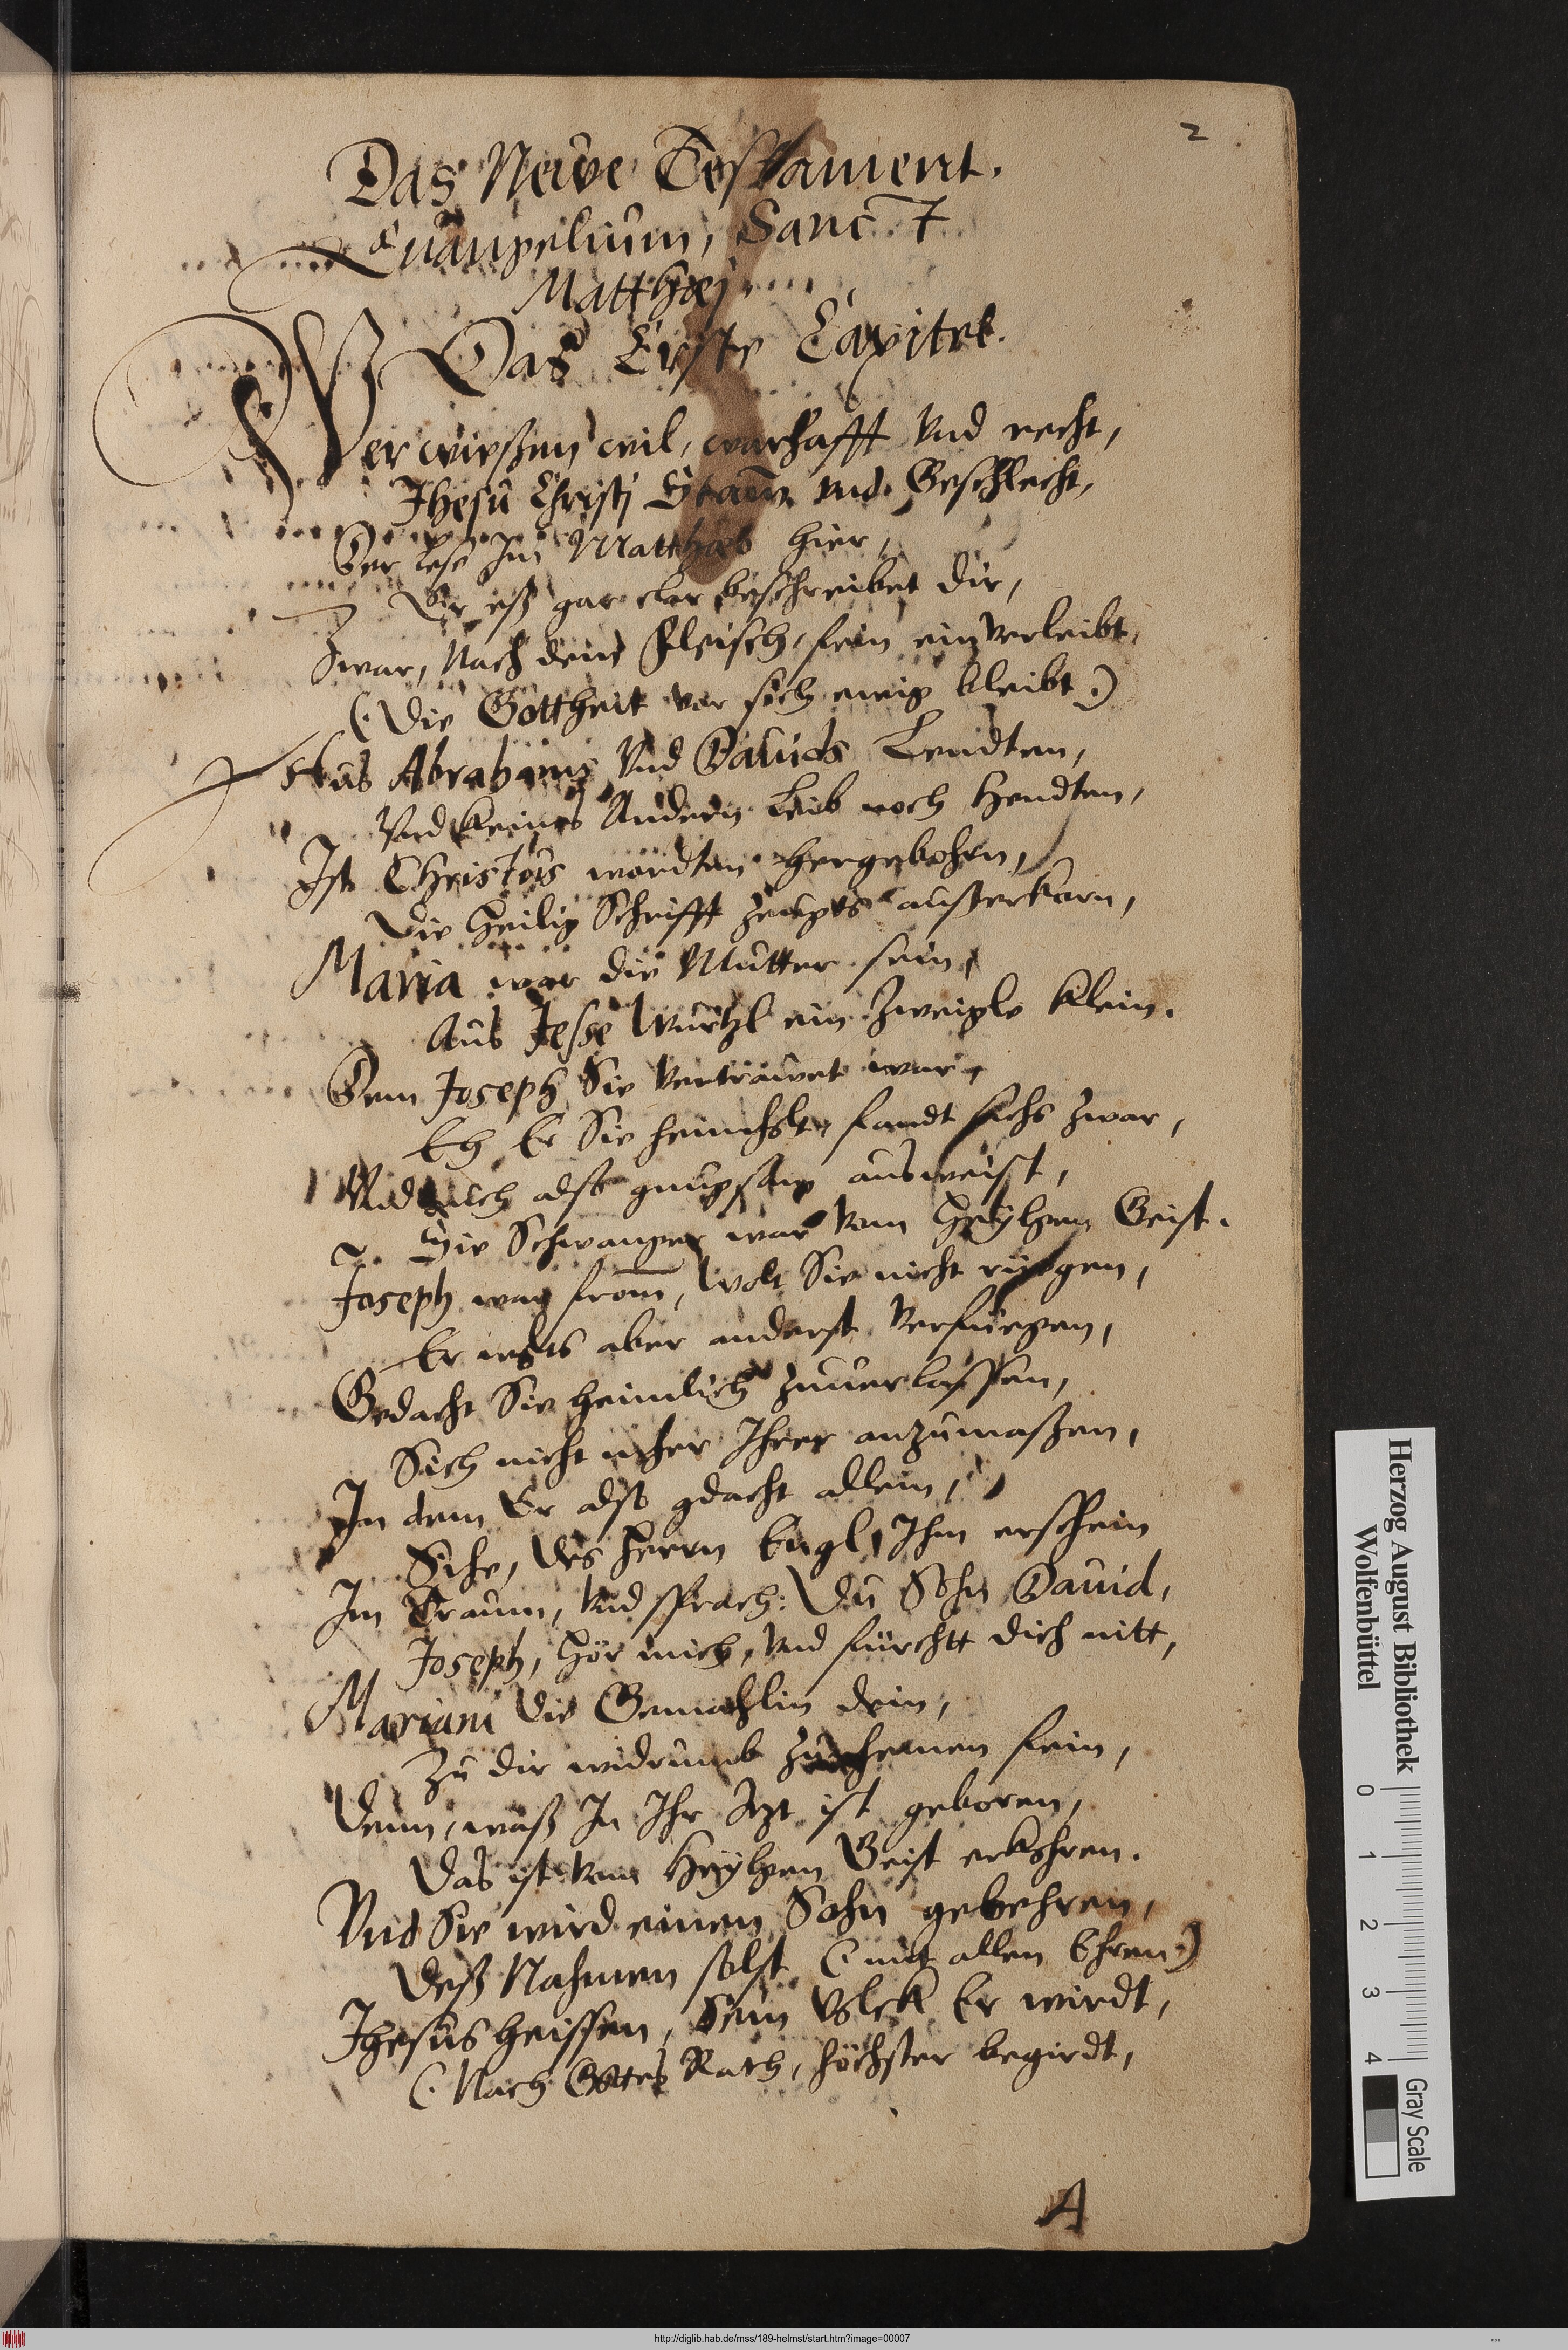 2
Das Neüe Testament.
Euangelium, Sanct
Matthæj.
Das Erste Capitel.
Wer wießen wil, warhafft Vnd recht,
Jhesu Christj Stam̅ vnd Geschlecht,
Der lese Im Matthæo hier,
Der eß gar clar beschreibet dir,
Zwar, Nach dem Fleisch, fein einverleibt,
(Die Gottheit vor sich ewig bleibt.)
Aus Abrahams Vnd Dauids Lendten,
Vnd keines Andern Leib noch Hendten,
Ist Christus wordten hergebohrn,
Die Heilig Schrifft zeugts außerkorn,
Maria war die Mutter sein,
Aus Jesse Wurtzl ein Zweigle klein.
Dem Joseph Sie Vertrauwet war,
Eh Er Sie heimholt, fandt sichs zwar,
Vnd sich also gnugsam ausweist,
Sie Schwanger war Vom Heylgen Geist.
Joseph war from̅, Wolt Sie nicht rüegen,
Er wolts aber anderst Verfüegen,
Gedacht Sie heimlich zuuerlassen,
Sich nicht mher Ihrer anzumaßen,
In dem Er also gdacht allein,
Sihe, des Herrn Engl, Ihm erschein
Im Traum, Vnd sprach: Du Sohn Dauid,
Joseph, hör mich, Vnd fürchtt dich nitt,
Mariam die Gemahlin dein,
Zu dir widrumb zu nemen fein,
Denn, waß In Ihr Itzt ist geboren,
Das ist Vom Heylgen Geist erkohren.
Vnd Sie wird einen Sohn gebehren,
Deß Nahmen solst (mit allen Ehren)
Jhesus heissen, Sein Volck Er wirdt,
(Nach Gottes Rath, höchster begirdt,
A
Herzog August Bibliothek
Wolfenbüttel
0 1 2 3 4
Gray Scale
http://diglib.hab.de/mss/189-helmst/start.htm?image=00007